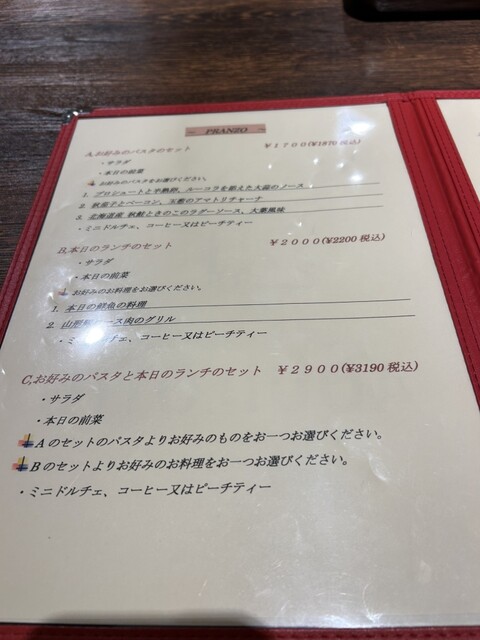 ～ PRANZO ～
A,お好みのパスタのセット ￥1700(¥1870税込)
・サラダ
・本日の前菜
お好みのパスタをお選びください。
1. プロシュートと半熟卵、ルーコラを添えた大蒜のソース
2. 秋茄子とベーコン、玉葱のアマトリチャーナ
3. 北海道産 秋鮭ときのこのラグーソース、大葉風味
・ミニドルチェ、コーヒー又はピーチティー
B,本日のランチのセット ￥2000(¥2200税込)
・サラダ
・本日の前菜
お好みのお料理をお選びください。
1. 本日の鮮魚の料理
2. 山形 ース肉のグリル
・ミ ドルチェ、コーヒー又はピーチティー
C,お好みのパスタと本日のランチのセット ￥2900(¥3190税込)
・サラダ
・本日の前菜
Aのセットのパスタよりお好みのものをお一つお選びください。
Bのセットよりお好みのお料理をお一つお選びください。
・ミニドルチェ、コーヒー又はピーチティー